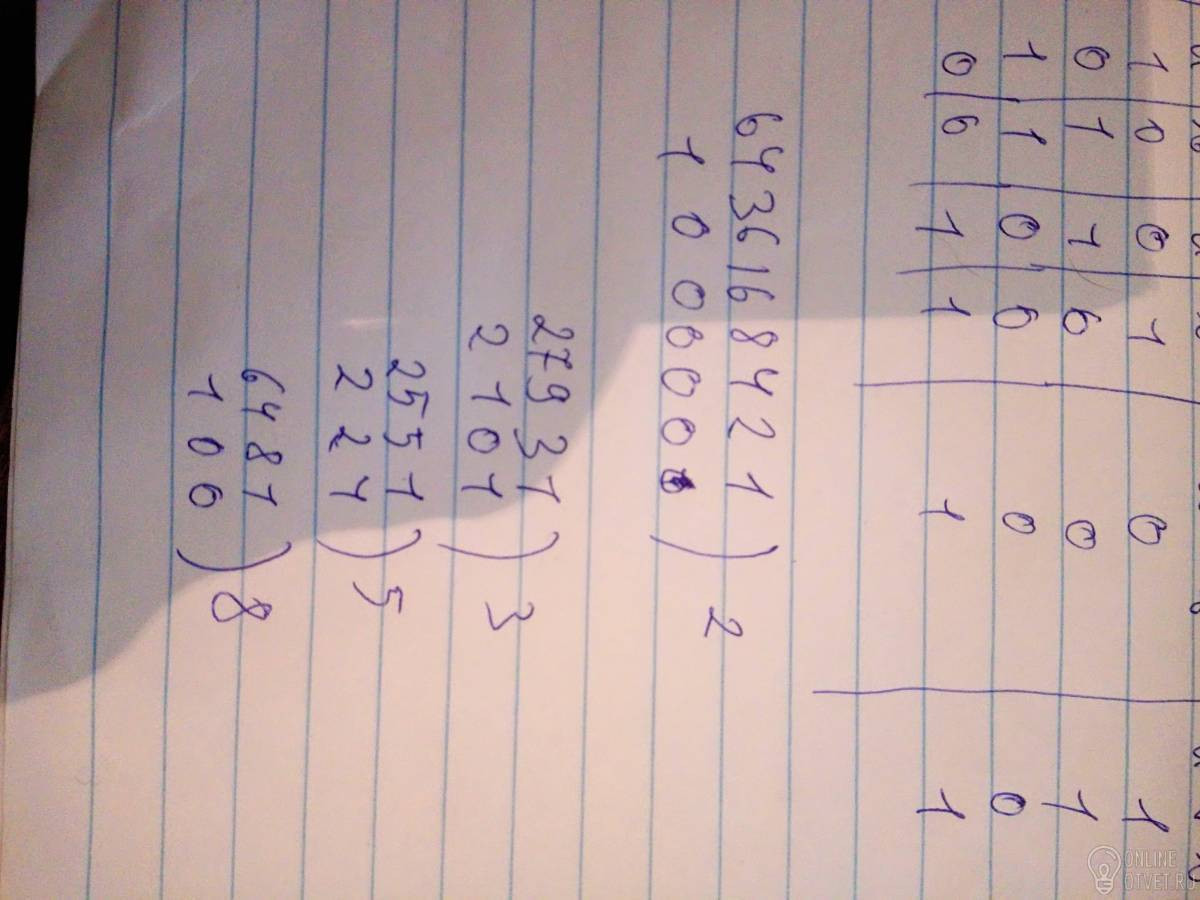 1 0 0 1 0 1
0 1 1 0 0 1
1 1 0 0 0 0
0 0 1 1 1 1
64 36 16 8 4 2 1
1 0 0 0 0 0 0 ) 2
27 9 3 1
2 1 0 1 ) 3
25 5 1
2 2 1 ) 5
64 8 1
1 0 0 ) 8
ONLINE
OTVET.RU